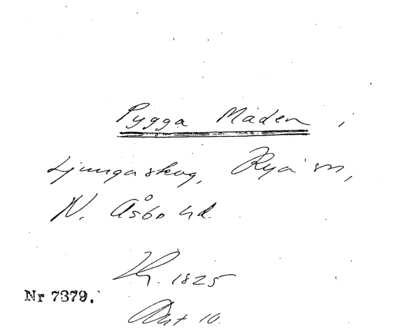 Pygga Maden i
Ljungaskog, Rya sn,
N. Åsbo hd.
1825
Nr 7379.
10.